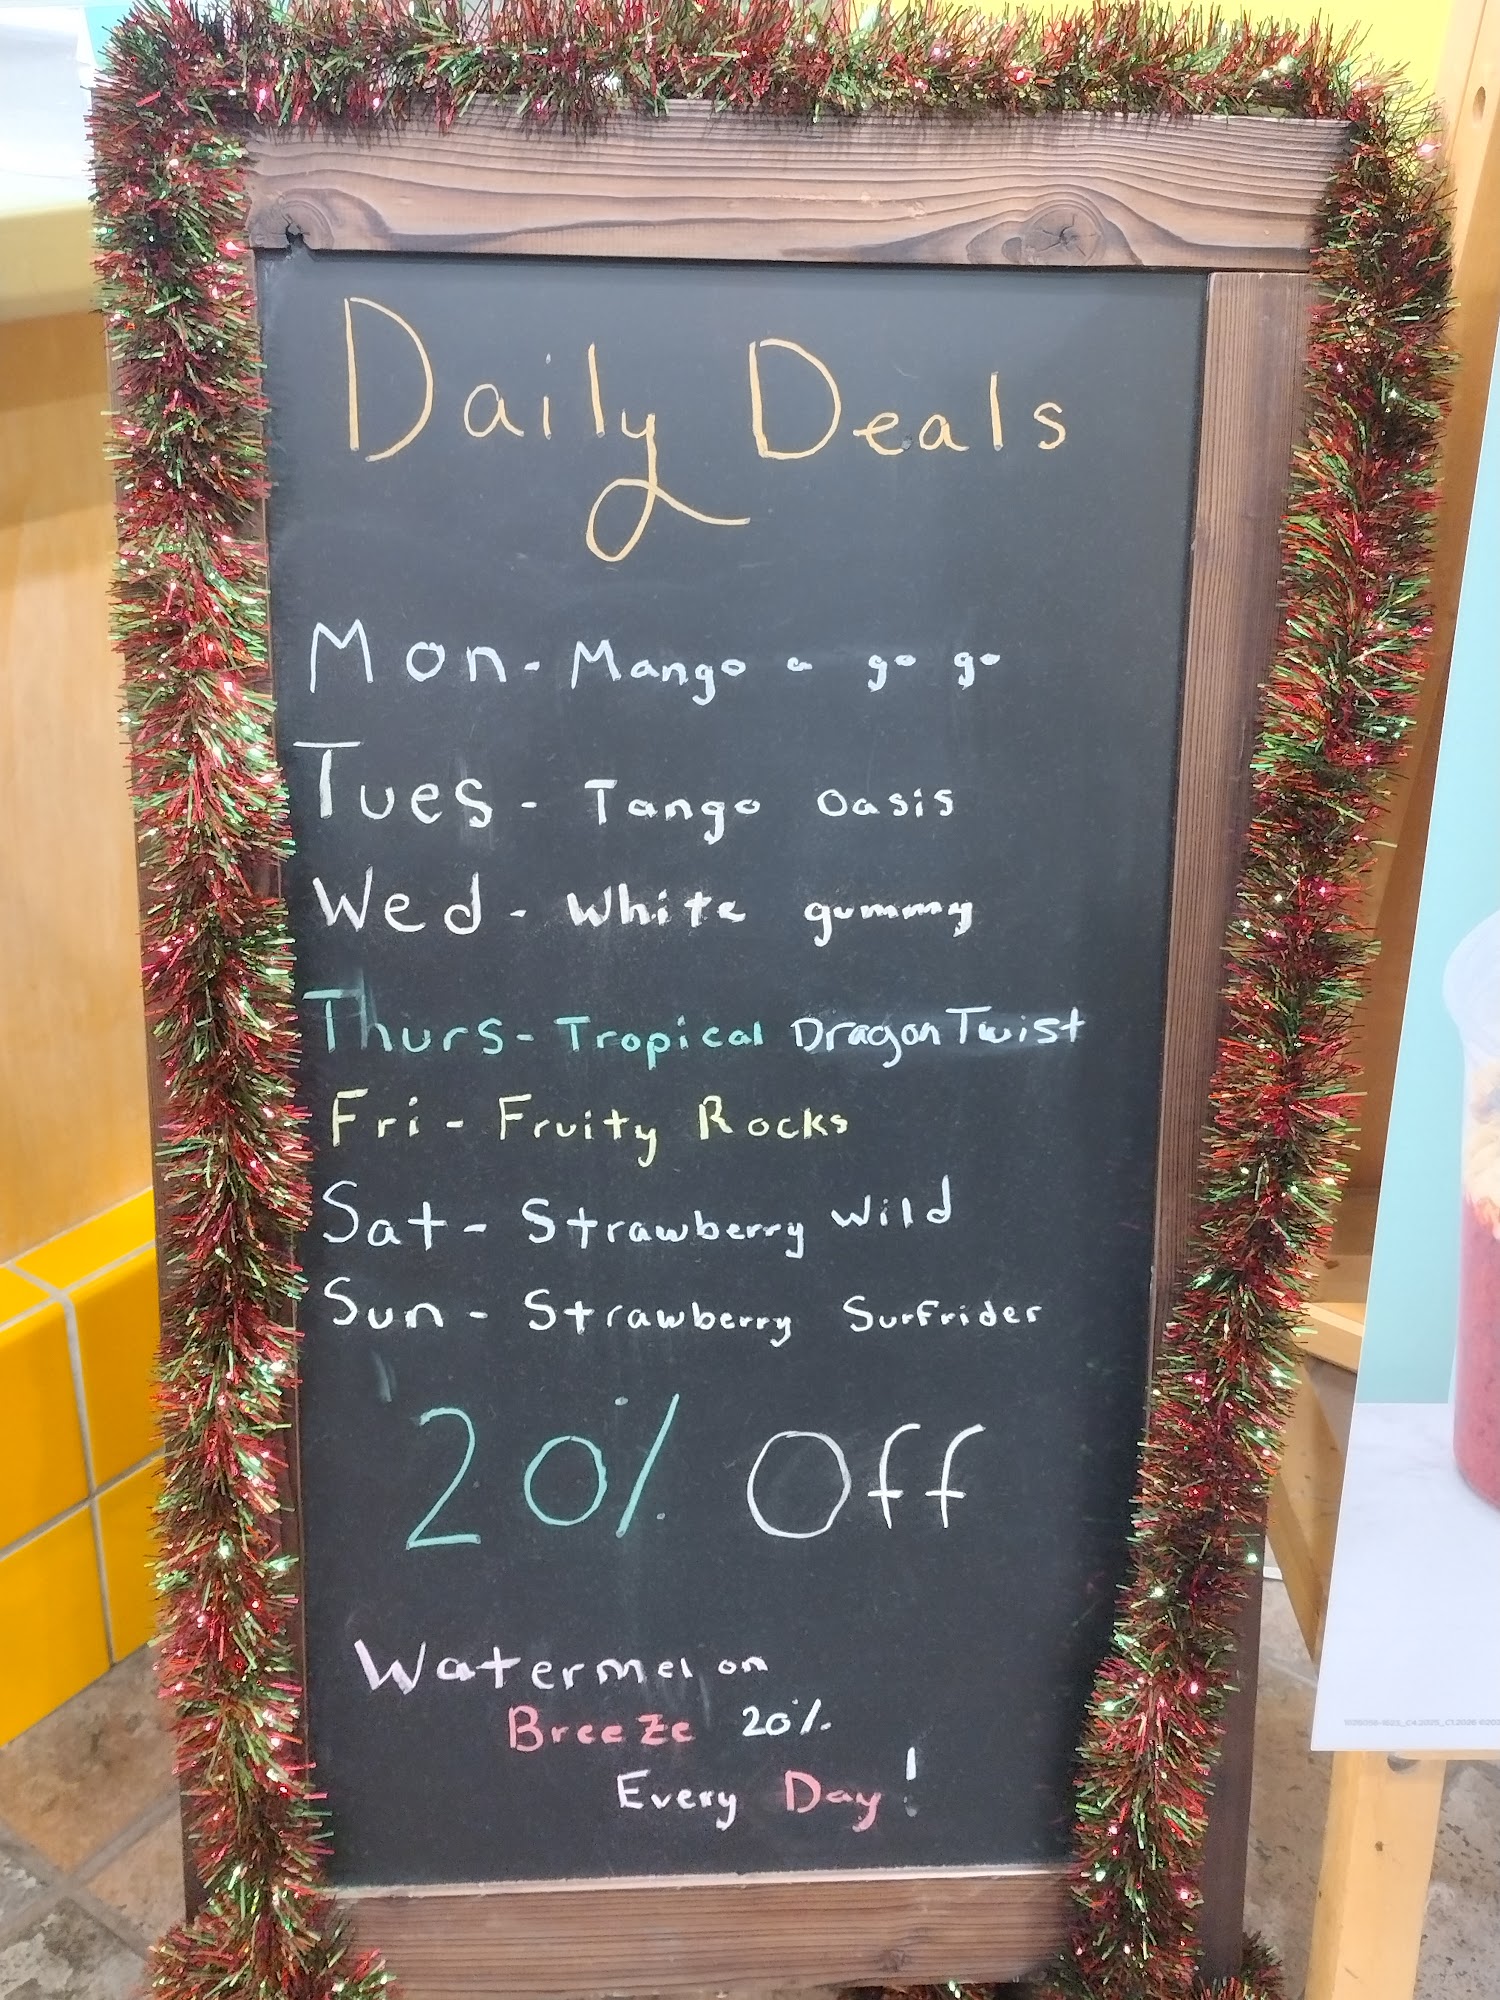 Daily Deals
Mon - Mango a go go
Tues - Tango Oasis
Wed - White gummy
Thurs - Tropical Dragon Twist
Fri - Fruity Rocks
Sat - Strawberry Wild
Sun - Strawberry Surfrider
20% Off
Watermelon
Breeze 20%
Every Day!